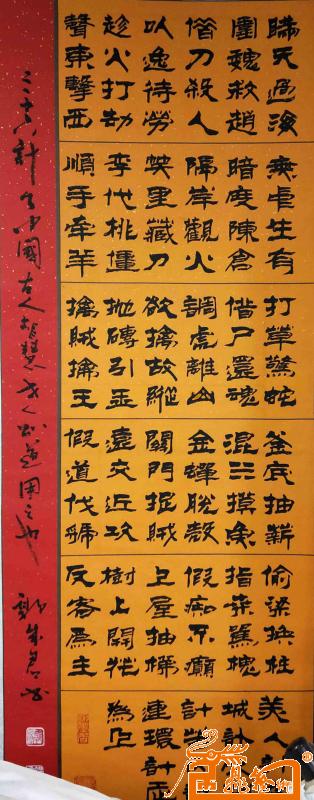 瞞天過海
圍魏救趙
借刀殺人
以逸待勞
趁火打劫
聲東擊西
無中生有
暗度陳倉
隔岸觀火
笑里藏刀
李代桃僵
順手牽羊
打草驚蛇
借尸還魂
調虎離山
欲擒故縱
拋磚引玉
擒賊擒王
釜底抽薪
混水摸魚
金蟬脫殼
關門捉賊
遠交近攻
假道伐虢
偷梁換柱
指桑罵槐
假痴不癲
上屋抽梯
樹上開花
反客為主
美人
城計
計苦
連環計走
為上
三十六計乃中國古人智慧